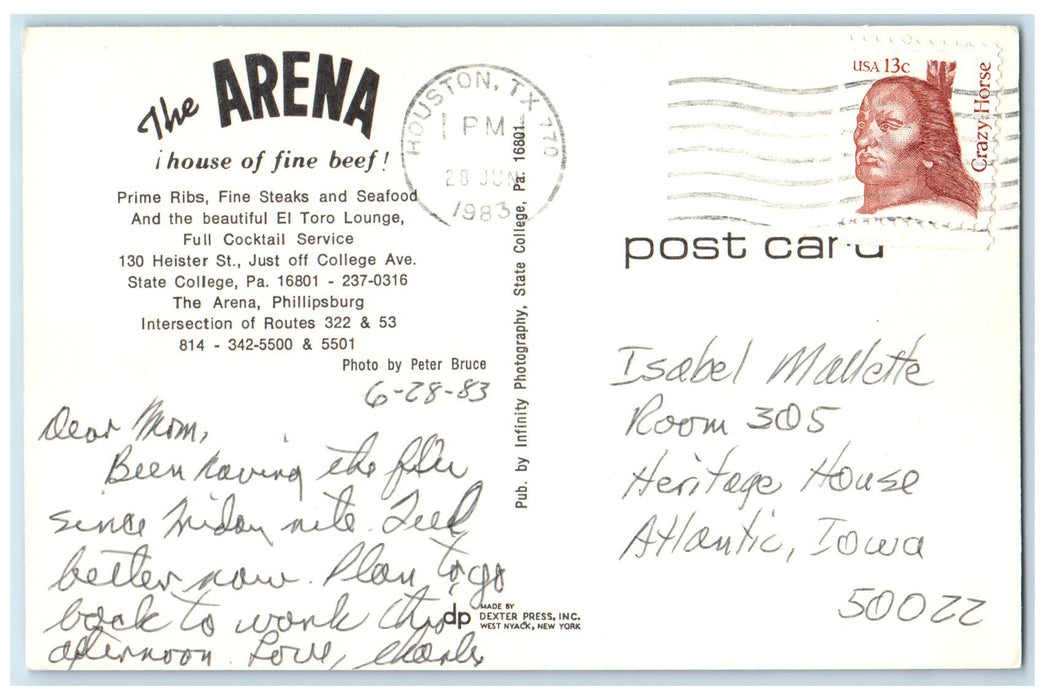 The ARENA
¡house of fine beef!
Prime Ribs, Fine Steaks and Seafood
And the beautiful El Toro Lounge,
Full Cocktail Service
130 Heister St., Just off College Ave.
State College, Pa. 16801 - 237-0316
The Arena, Phillipsburg
Intersection of Routes 322 & 53
814 - 342-5500 & 5501
Photo by Peter Bruce
6-28-83
Dear Mom,
Been having the flu
since Friday nite. Feel
better now. Plan to go
back to work this
afternoon. Love, Charles
Pub. by Infinity Photography, State College, Pa. 16801
dp MADE BY
DEXTER PRESS, INC.
WEST NYACK, NEW YORK
HOUSTON, TX 770
PM
28 JUN
1983
USA 13c
Crazy Horse
post card
Isabel Mallette
Room 305
Heritage House
Atlantic, Iowa
50022